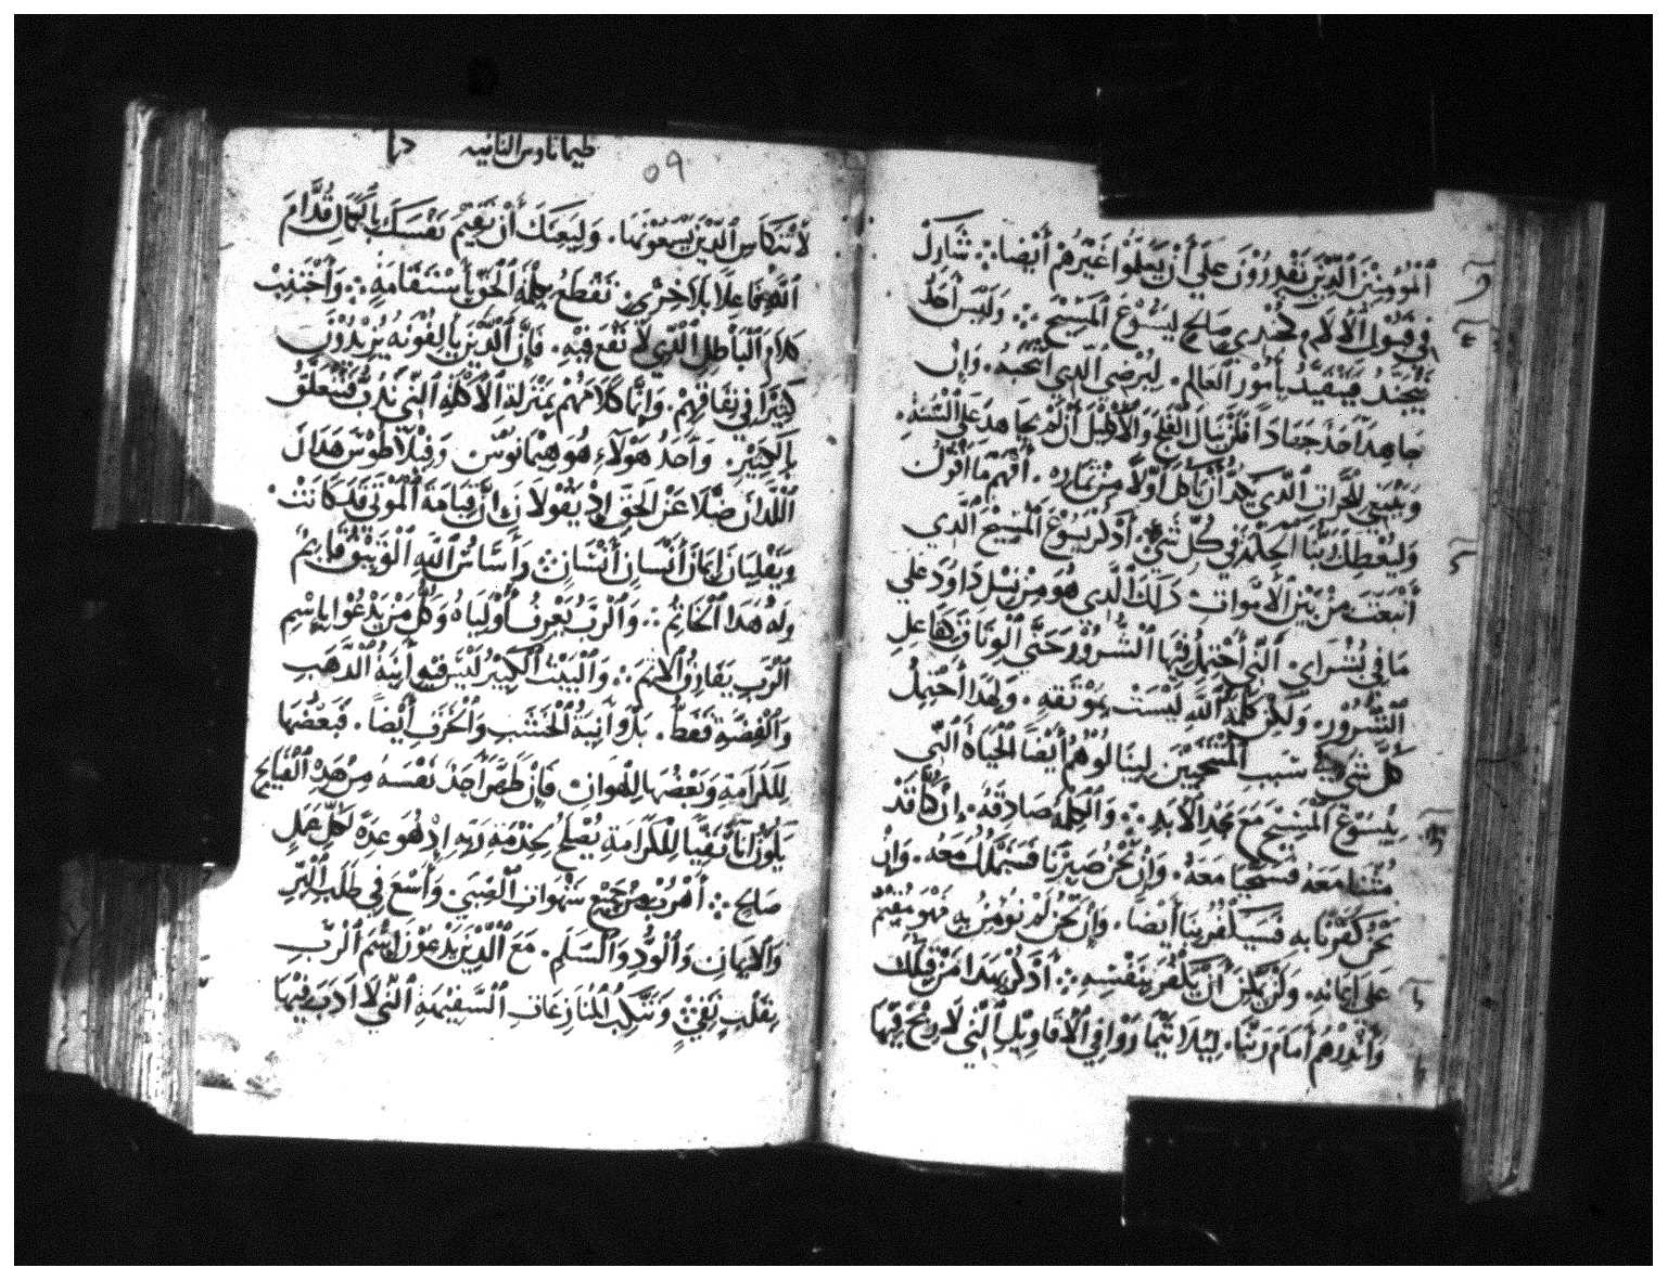 ٱلْمُؤْمِنِينَ ٱلَّذِينَ يَقْدِرُوْنَ عَلَي أَنْ يُعَلِّمُوْا غَيْرَهُمْ أَيْضًا ܀ شَارِكْ
فِي قَبُوْلِ ٱلْالَامِ كَجُنْدِي صَالِحٍ لِيَسُوْعَ ٱلْمَسِيْحِ ܀ وَلَيْسَ أَحَدٌ
يَتَجَنَّدُ فَيَتَقَيَّدُ بِأُمُوْرِ ٱلعَالَمِ. لِيُرْضِي ٱلَّذِي ٱنْتَخَبَهُ. وَإِنْ
جَاهَدَ أَحَدٌ جِهَادًا فَلَنْ يَنَالَ ٱلْفَلَحَ وَٱلْاكْلِيْلَ أَنْ لَمْ يُجَاهِدْ عَلَي ٱلْسُنَّةِ.
وَيَنْبَغِي لِلْحَرَّاثِ ٱلَّذِي يَكِدُّ أَنْ يَأْكُلَ أَوَّلًا مِنْ ثِمَارِهِ. أَفْهَمْ مَا أَقُوْلُ
وَلِيُعْطِكَ رَبُّنَا ٱلْحِكْمَةَ فِي كُلِّ شَيْءٍ. أُذْكُرْ يَسُوْعَ ٱلْمَسِيْحَ ٱلَّذِي
أَنْبَعَثَ مِنْ بَيْنِ ٱلْأَمْوَاتِ ܀ ذَلِكَ ٱلَّذِي هُوَ مِنْ نَسْلِ دَاوَدَ عَلَي
مَا فِي بُشْرَاي. ٱلَّتِي أَحْتَمِلُ فِيْهَا ٱلْشُّرُوْرَ حَتَّي ٱلْوِثَاقَ كَفَاعِلِ
ٱلْشُّرُوْرِ. وَلَكِنْ كَلِمَةُ ٱللَّهِ لَيْسَتْ بِمَوْثَقَةٍ. وَلِهَذَا أَحْتَمِلُ
كُلَّ شَيْءٍ بِسَبَبِ ٱلْمُنْتَخَبِيْنَ لِيَنَالُوْا هُمْ أَيْضًا ٱلْحَيَاةَ ٱلَّتِي
بِيَسُوْعَ ٱلْمَسِيْحِ مَعَ مَجْدِ ٱلْأَبَدِ ܀ وَٱلْكَلِمَةُ صَادِقَةٌ. إِنْ كُنَّا قَدْ
مُتْنَا مَعَهُ فَسَنَحْيَا مَعَهُ. وَإِنْ نَحْنُ صَبَرْنَا فَسَنَمْلُكُ مَعَهُ. وَإِنْ
نَحْنُ كَفَرْنَا بِهِ فَسَيَكْفُرُ بِنَا أَيْضًا. وَإِنْ نَحْنُ لَمْ نُوْمِنْ بِهِ فَهُوَ مُقِيْمٌ
عَلَي إِيمَانِهِ. وَلَنْ يُمْكِنَ أَنْ يَكْفُرَ بِنَفْسِهِ ܀ أُذْكُرْ بِهَذَا مَنْ قِبَلَكَ
وَأَنْذِرْهُمْ أَمَامَ رَبِّنَا. لِيَلَّا يَتَمَارَوْا فِي ٱلْأَقَاوِيْلِ ٱلَّتِي لَا رِبْحَ فِيْهَا
طيماتاوس الثانيه
٥٩
لِأَنْتِكَاسِ ٱلَّذِيْنَ يَسْمَعُوْنَهَا. وَلِيَعْنِكَ أَنْ تُقِيْمَ نَفْسَكَ بِٱلْكَمَالِ قُدَّامَ
ٱللَّهِ فَاعِلًا بِلَا خِزْيٍ تَقْطَعُ كَلِمَةَ ٱلْحَقِّ بِأَسْتِقَامَةٍ ܀ وَأَجْتَنِبْ
كَلَامَ ٱلْبَاطِلِ ٱلَّذِي لَا نَفْعَ فِيْهِ. فَإِنَّ ٱلَّذِيْنَ يَأْلَفُوْنَهُ يَزِيْدُوْنَ
كَثِيْرًا فِي نِفَاقِهِمْ. وَإِنَّمَا كَلَامُهُمْ بِمَنْزِلَةِ ٱلْأَكِلَةِ ٱلَّتِي تَدُبُّ فَتَتَعَلَّقُ
بِٱلْكَثِيْرِ. وَأَحَدُ هَوْلَاءِ هُوَ هِيْمَانَوُسُ. وَفِيْلَاطُوْسَ هَذَانِ
ٱللَّذَانِ ضَلَّا عَنِ ٱلْحَقِّ إِذْ يَقُوْلَانِ إِنَّ قِيَامَةَ ٱلْمَوْتَي قَدْ كَانَتْ.
وَيَقْلِبَانِ إِيمَانَ أَنْسَانٍ أَنْسَانٍ ܀ وَأَسَاسُ ٱللَّهِ ٱلْوَثِيْقُ قَايِمٌ
وَلَهُ هَذَا ٱلْخَاتِمُ ܀ وَٱلْرَّبُّ يَعْرِفُ أَوْلِيَاهُ وَكُلُّ مَنْ يَدْعُوْا بِإِسْمِ
ٱلْرَّبِّ يُفَارِقُ ٱلْاثْمَ ܀ وَٱلْبَيْتُ ٱلْكَبِيْرُ لَيْسَ فِيْهِ أَنِيَةُ ٱلْذَّهَبِ
وَٱلْفِضَّةِ فَقَطْ. بَلْ وَآنِيَةُ ٱلْخَشَبِ وَٱلْخَزَفِ أَيْضًا. فَبَعْضُهَا
لِلْكَرَامَةِ وَبَعْضُهَا لِلْهَوَانِ فَإِنْ طَهَّرَ أَحَدٌ نَفْسَهُ مِنْ هَذِهِ ٱلْقَبَايِحِ
يَكُوْنُ إِنَآءً نَقِيًّا لِلْكَرَامَةِ يُصْلِحُ لِخِدْمَةِ رَبِّهِ إِذْ هُوَ عِدَّةٌ لِكُلِّ عَمَلٍ
صَالِحٍ ܀ أُهْرُبْ مِنْ جَمِيْعِ شَهْوَاتِ ٱلْصِّبَي. وَٱسْعَ فِي طَلَبِ ٱلْبِرِّ
وَٱلْايْمَانِ وَٱلْوُدِّ وَٱلْسَّلَمِ. مَعَ ٱلَّذِيْنَ يَدْعَوْنَ إِسْمَ ٱلْرَّبِّ
بِقَلْبٍ نَقِيٍّ ܀ وَتَنَكَّبِ ٱلْمُنَازَعَاتِ ٱلْسَّفِيْهَةِ ٱلَّتِي لَا أَدَبَ فِيْهَا